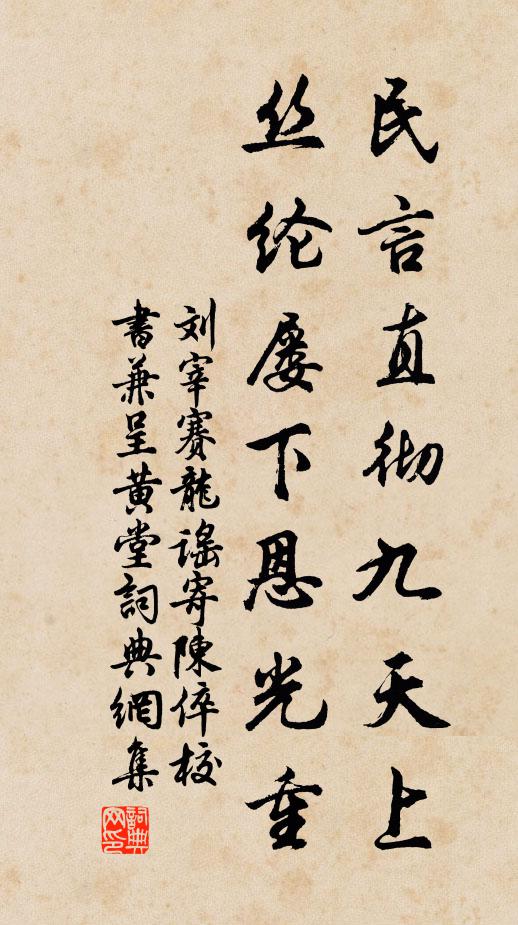 民言直彻九天上
丝纶屡下恩光重
刘宰赛龍謡寄陳倅校
書兼呈黄堂詞典網集
詞典网印